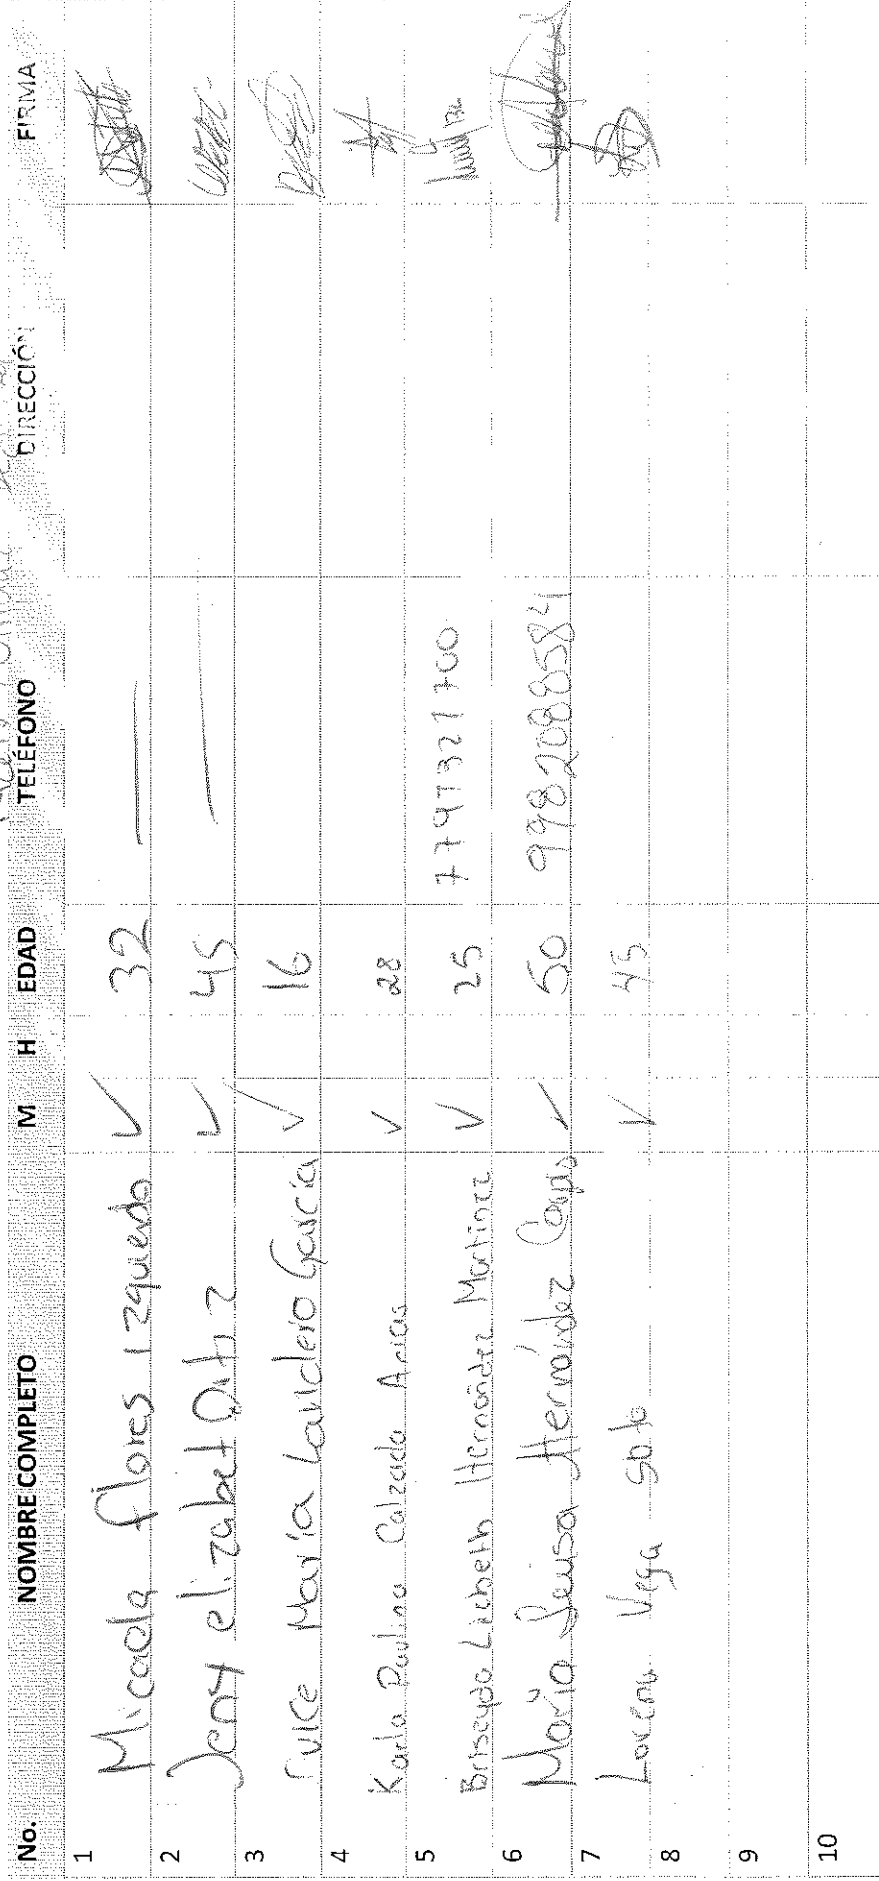 No. NOMBRE COMPLETO M H EDAD TELÉFONO DIRECCIÓN FIRMA
1 Micaela flores Izquierdo ✓ 32 —
2 Jeny elizabet Ortiz ✓ 45 —
3 Dulce María Landero García ✓ 16
4 Karla Paulina Calzada Arias ✓ 28
5 Briseyda Lizbeth Hernández Martínez ✓ 25 7797321700
6 María Luisa Hernández ✓ 50 9982088584
7 Lorena Vega Soto ✓ 45
8
9
10